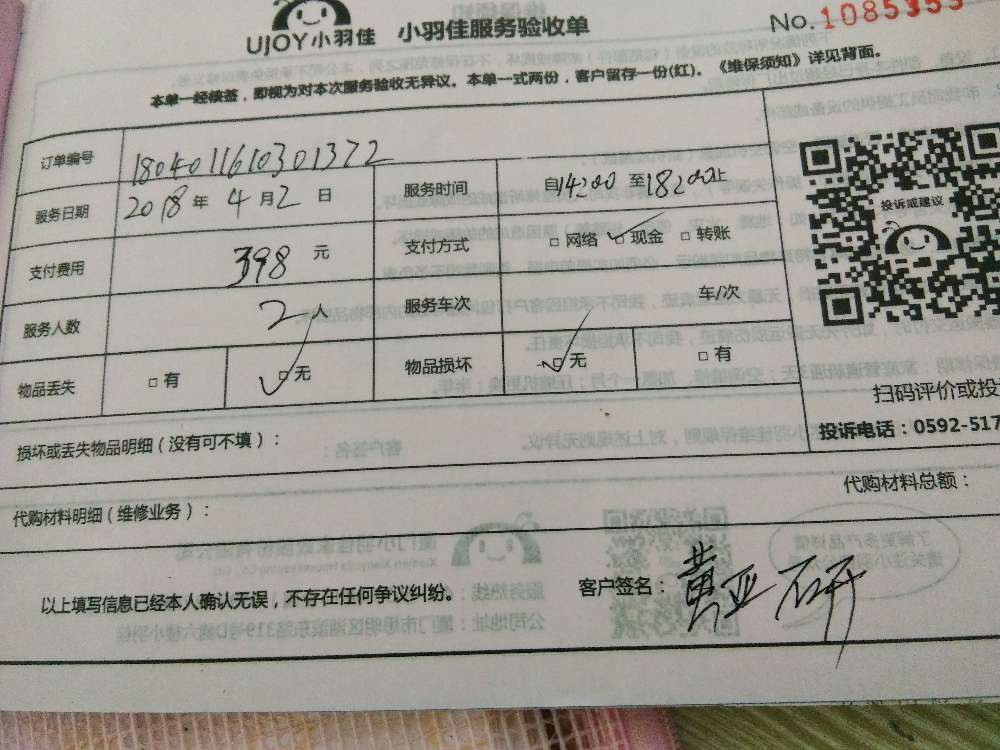 UJOY小羽佳 小羽佳服务验收单
No.1085353
本单一经核签，即视为对本次服务验收无异议。本单一式两份，客户留存一份(红)。《维保须知》详见背面。
订单编号 1804011610301372
服务日期 2018年4月2日 服务时间 自14:00至18:00止
支付费用 398元 支付方式 □网络 ☑现金 □转账
服务人数 2人 服务车次 车/次
物品丢失 □有 ☑无 物品损坏 ☑无 □有
投诉或建议
扫码评价或投
投诉电话：0592-517
损坏或丢失物品明细（没有可不填）：
代购材料明细（维修业务）： 代购材料总额：
以上填写信息已经本人确认无误，不存在任何争议纠纷。 客户签名：黄亚研